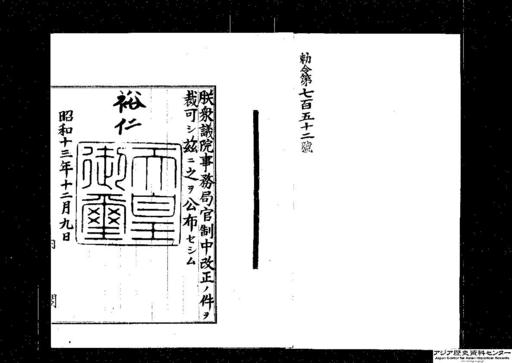 勅令第七百五十二號
朕衆議院事務局官制中改正ノ件ヲ
裁可シ茲ニ之ヲ公布セシム
裕仁
天皇
御璽
昭和十三年十二月九日
内閣
アジア歴史資料センター
Japan Center for Asian Historical Records